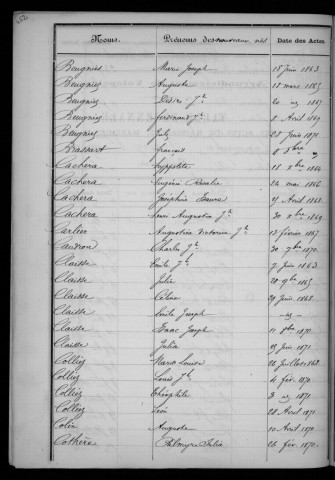 Noms. Prénoms des nouveaux nés Date des Actes
Beugnies Marie Joseph 15 Juin 1863
Beugnies Auguste 17 mars 1865
Beugnies Désiré Jh 20 1867
Beugnies ferdinand Jh 8 Avril 1869
Beugnies July 28 Juin 1870
Brassart françois 8
Cachera hyppolite 18 1864
Cachera Eugénie Rosalie 24 mai 1866
Cachera Joséphine Laure Avril 1868
Cachera henri Augustin Jh 30 1869
Carlier Augustine victorine Jh 12 février 1867
Caudron Charles Jh 30 9bre 1870
Claisse Emile Jh 7 Juin 1863
Claisse Julie 20 9bre 1865
Claisse Céline 29 Juin 1868
Claisse Emile Joseph
Claisse Isaac Joseph 11 8bre 1870
Claisse Julia Juin 1871
Colliez Marie Louise 26 Juillet 1868
Colliez Louis Jh 4 fév. 1870
Colliez Théophile 3 1871
Colliez Léon 28 Avril 1871
Colin Auguste 10 Avril 1870
Cothère Palmyre Julie 26 fév. 1870